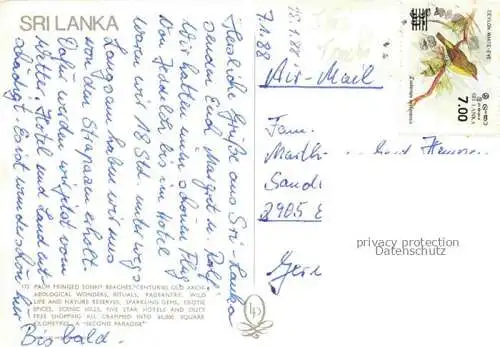 SRI LANKA
7.1.88
13.1.88
Air-Mail
Herzliche Grüße aus Sri-Lanka
senden Euch Margot u. Rolf.
Wir hatten einen schönen Flug
Von bis im Hotel
waren wir 18 Std. unterwegs
Langsam haben wir uns
von den Strapazen erholt.
Dafür werden wir jetzt vom
Wetter, Hotel und Land ent-
schädigt. Es ist wunderschön hier
Bis bald.
Fam.
Sandi
2905 E
Gern
CEYLON WHITE-EYE
7.00
SRI LANKA
privacy protection watermark
Datenschutz-Wasserzeichen
PALM FRINGED SUNNY BEACHES, CENTURIES OLD ARCH-
AEOLOGICAL WONDERS, RITUALS, PAGEANTRY, WILD
LIFE AND NATURE RESERVES, SPARKLING GEMS, EXOTIC
SPICES, SCENIC HILLS, FIVE STAR HOTELS AND DUTY
FREE SHOPPING ALL CRAMMED INTO SQUARE
KILOMETRES. A "SECOND PARADISE"